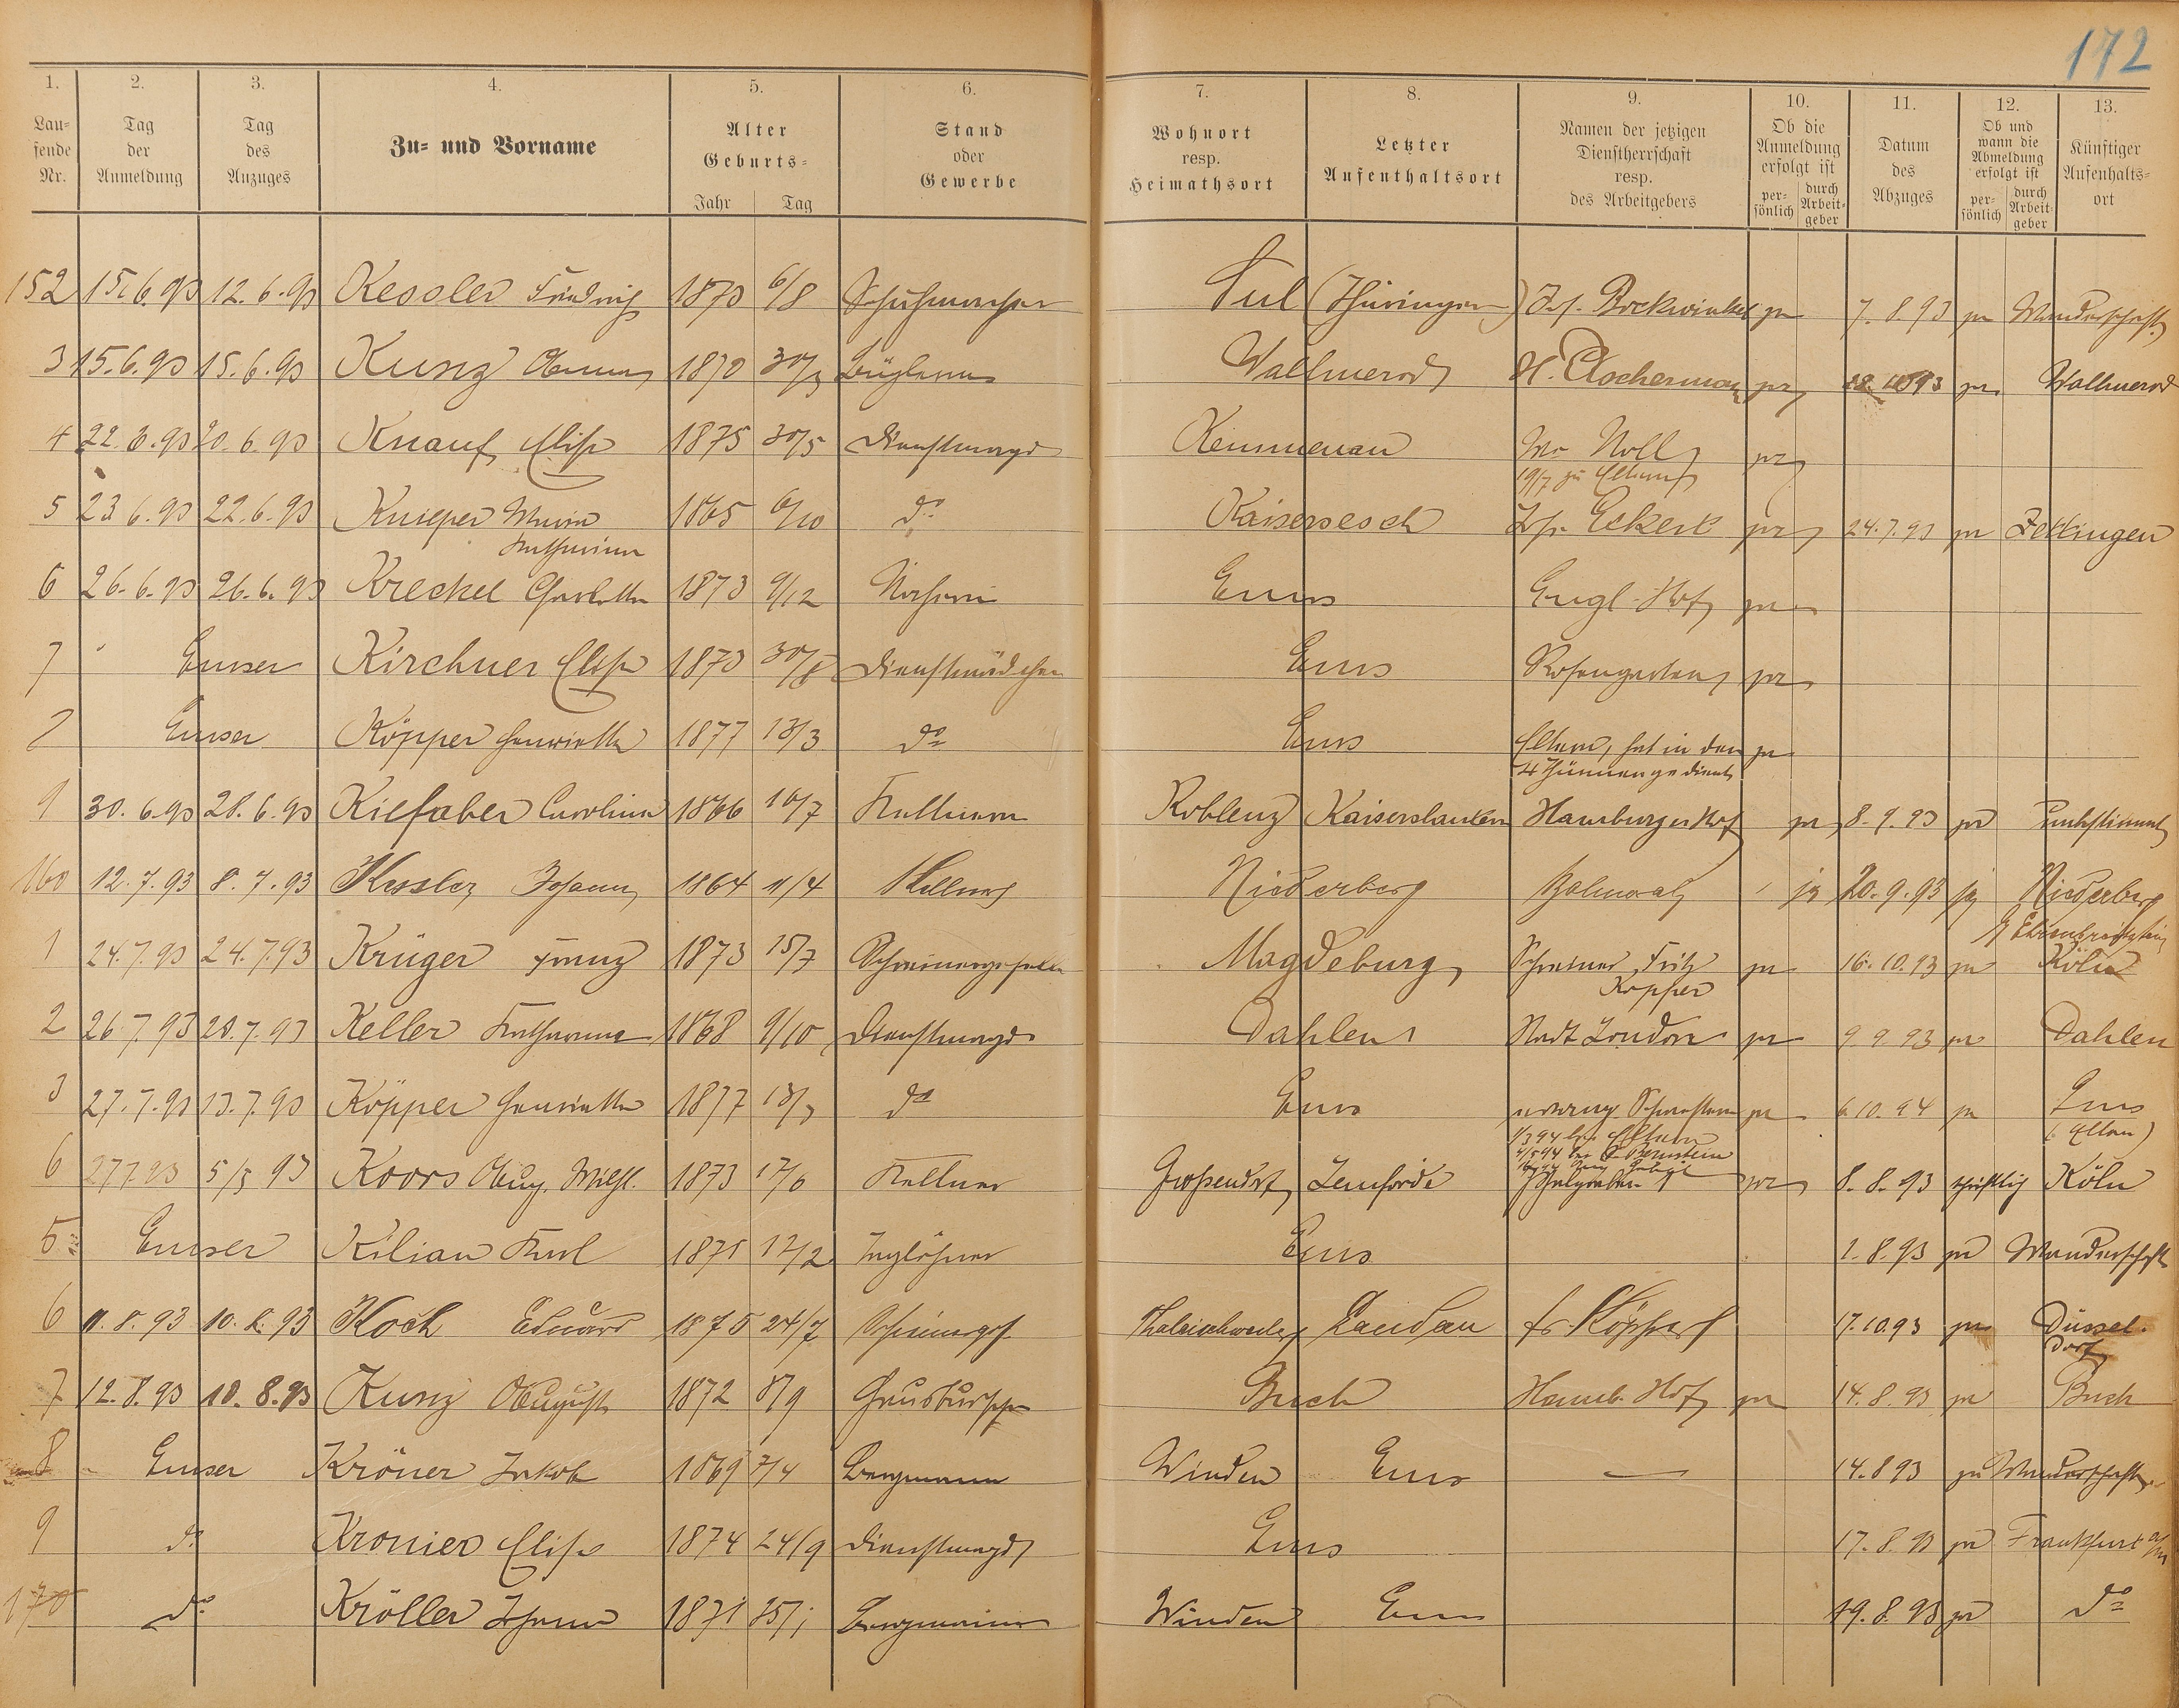 172
1. 2. 3. 4. 5. 6. 7. 8. 9. 10. 11. 12. 13.
Lau-
fende
Nr.
Tag
der
Anmeldung
Tag
des
Anzuges
Zu- und Vorname
Alter
Geburts-
Jahr Tag
Stand
oder
Gewerbe
Wohnort
resp.
Heimathsort
Letzter
Aufenthaltsort
Namen der jetzigen
Dienstherrschaft
resp.
des Arbeitgebers
Ob die
Anmeldung
erfolgt ist
per-
sönlich
durch
Arbeit-
geber
Datum
des
Abzuges
Ob und
wann die
Abmeldung
erfolgt ist
per-
sönlich
durch
Arbeit-
geber
Künftiger
Aufenthalts-
ort
152 15.6.93 12.6.93 Kessler Friedrich 1873 6/8 Schuhmacher Sul (Thüringen) Jos. Bockwinkel 7.8.93 Wanderschaft
3 15.6.93 15.6.93 Kunz 1870 30/3 Büglerin Wallmerod H. 93 Wallmerod
4 22.6.93 20.6.93 Knauf Elise 1875 30/5 Dienstmagd Kemmenau Noll
19/7 zu Eltern
5 23 6.93 22.6.93 Knieper Maria 1865 6/10 do Kaisersesch Eckert 24.7.93 Zettingen
Katharina
6 26.6.93 26.6.93 Kreckel Charlotte 1873 9/12 Näherin Ems Engl. Hof
7 Emser Kirchner Elise 1873 30/8 Dienstmädchen Ems Rosengarten
Emser Köpper Henriette 1877 13/3 do Ems Eltern, hat in den
4 Thürmen gedient
9 30.6.93 28.6.93 Kiefaber Carolina 1866 16/7 Kellnerin Koblenz Kaiserslautern Hamburger Hof 8.9.93 unbestimmt
160 12.7.93 8.7.93 Kessler Johann 1864 11/4 Kellner Niederberg Balmoral 20.9.93 Niederberg
b/ Ehrenbreitstein
1 24.7.93 24.7.93 Krüger Franz 1873 15/7 Schreinergeselle Magdeburg Schreiner Fritz 16.10.93 Köln
Köpper
2 26.7.93 20.7.93 Keller Katharina 1868 9/10 Dienstmagd Dahlen Stadt London 9.9.93 Dahlen
3 27.7.93 13.7.93 Köpper Henriette 1877 13/3 do Ems 6.10.94 Ems
(b. Eltern)
1/3 94 bei Eltern
Bernstein
6 27 7 93 5/5 93 Koors Aug. Wilh. 1873 17/6 Kellner Großendorf Lemförde 8.8.93 schriftlich Köln
5 Emser Kilian Karl 1875 12/2 Taglöhner Ems 1.8.93 Wanderschaft
6 11.8.93 10.8.93 Koch Eduard 1875 24/7 Schreinerges. Thaleischweiler Landau Fr. Köpper 17.10.93 Düssel-
dorf
7 12.8.93 10.8.93 Kunz August 1872 8/9 Hausbursche Buch Hamb. Hof 14.8.93 Buch
8 Emser Kröner Jakob 1869 7/4 Bergmann Winden Ems — 14.8 93 Wanderschaft
9 do Kronier Elise 1874 24/9 Dienstmagd Ems 17.8.93 Frankfurt a/m
170 do Kröller Johann 1871 25/1 Bergmann Winden Ems 19.8.93 do